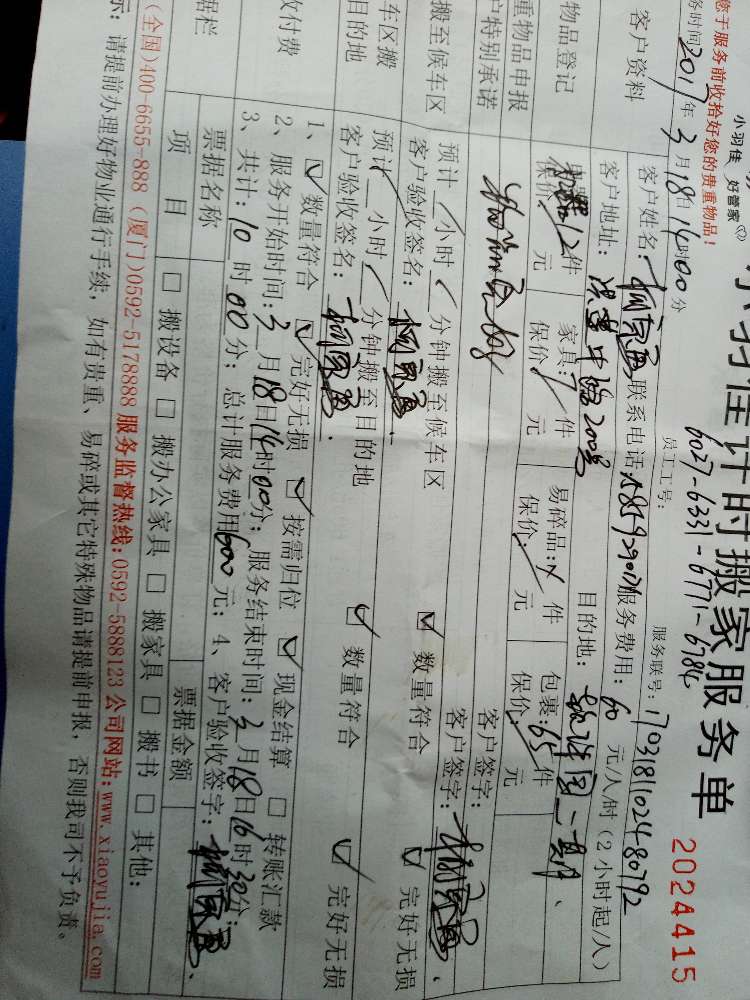 小羽佳 好管家
小羽佳计时搬家服务单
2024415
您于服务前收拾好您的贵重物品!
员工工号: 6027-6331-6771-6784
务时间2017年3月18日14时00分
服务联号: 17031811024-80792
客户资料
客户姓名:
联系电话:
服务费用: 60 元/人/时(2小时起/人)
客户地址:
目的地:
物品登记
12件 家具: 件 易碎品: 件 包裹: 65件
保价: 元 保价: 元 保价: 元 保价: 元
重物品申报
客户签字:
户特别承诺
客户签字:
搬至候车区
预计 小时 分钟搬至候车区
数量符合 完好无损
客户验收签名:
车区搬
目的地
预计 小时 分钟搬至目的地
数量符合 完好无损
客户验收签名:
收付费
1、 数量符合 完好无损 按需归位 现金结算 转账汇款
2、服务开始时间: 3月18日14时00分; 服务结束时间: 3月18日16时30分;
3、共计: 10时00分; 总计服务费用600元; 4、客户验收签字:
据栏
票据名称 票据金额
项目 搬设备 搬办公家具 搬家具 搬书 其他:
(全国)400-6655-888 (厦门)0592-5178888 服务监督热线:0592-5888123 公司网站:www.xiaoyujia.com
示: 请提前办理好物业通行手续, 如有贵重、易碎或其它特殊物品请提前申报, 否则我司不予负责。